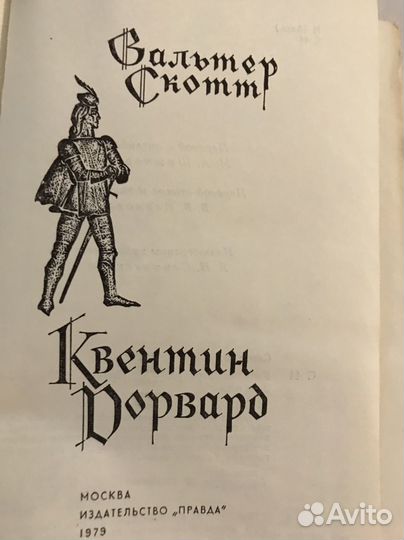 Вальтер
Скотт
Квентин
Дорвард
МОСКВА
ИЗДАТЕЛЬСТВО „ПРАВДА"
1979
Avito